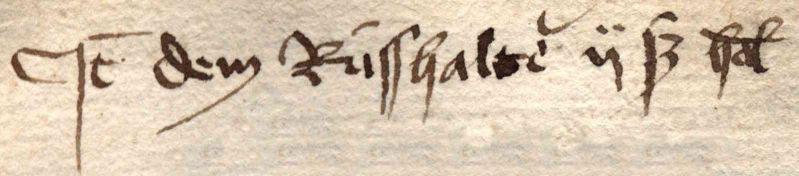 It̄ dem Rüsshaltē ij ß hl